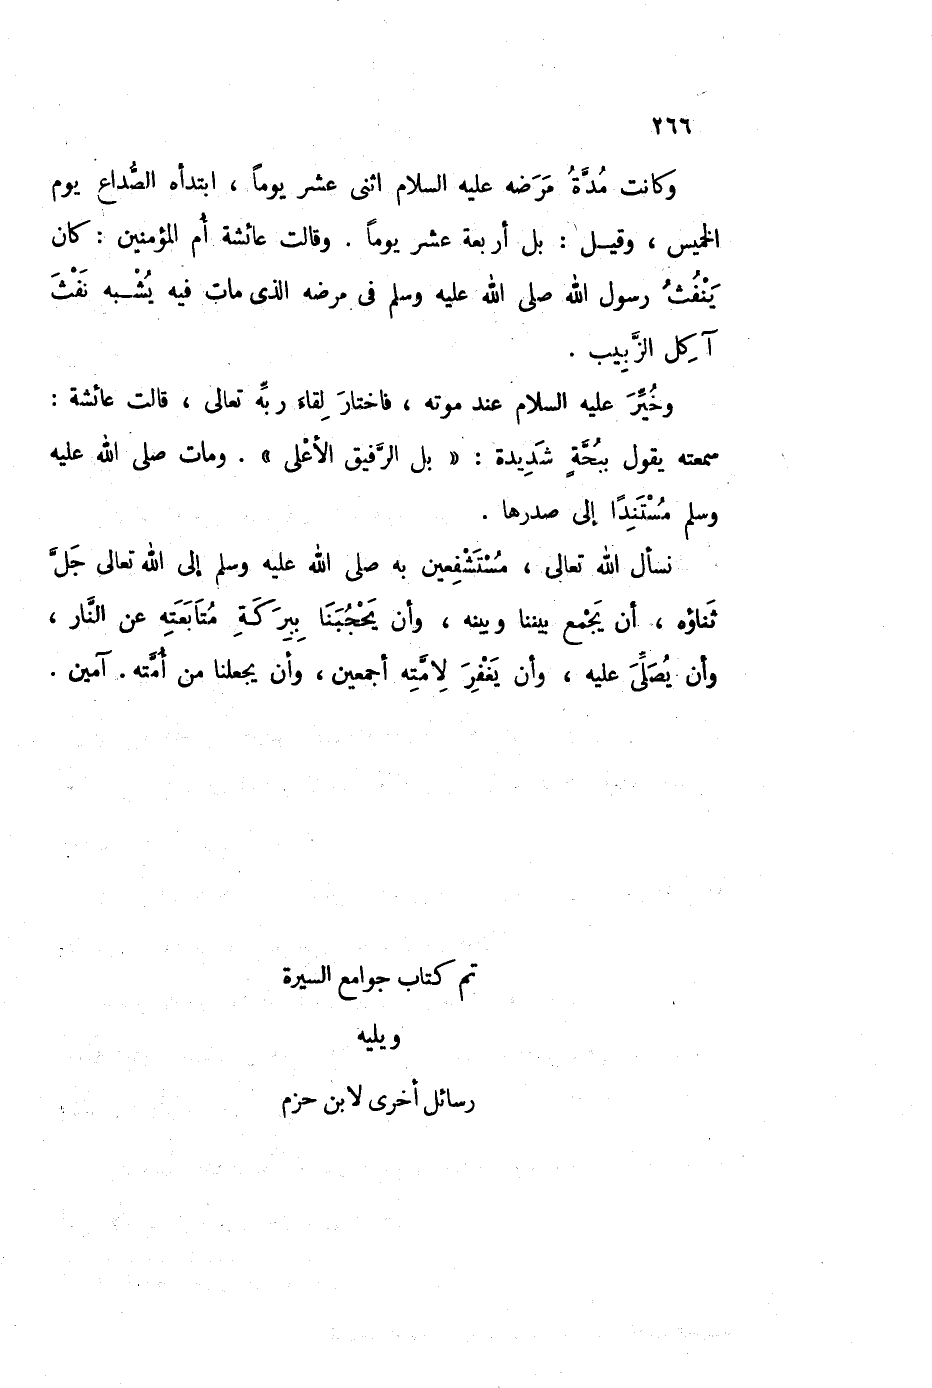 ٢٦٦
وكانت مُدَّةُ مَرَضه عليه السلام اثنى عشر يوماً ، ابتدأه الصُّداع يوم
الخميس ، وقيل : بل أربعة عشر يوماً . وقالت عائشة أُم المؤمنين : كان
يَنْفُثُ رسول الله صلى الله عليه وسلم فى مرضه الذى مات فيه يُشْبه نَفْثَ
آكِل الزَّبِيب .
وخُيِّرَ عليه السلام عند موته ، فاختارَ لِقاءَ ربِّه تعالى ، قالت عائشة :
سمعته يقول ببُحَّةٍ شَدِيدة : « بل الرَّفيق الأعْلى » . ومات صلى الله عليه
وسلم مُسْتَنِدًا إلى صدرها .
نسأل الله تعالى ، مُسْتَشْفِعين به صلى الله عليه وسلم إلى الله تعالى جَلَّ
ثَناؤه ، أن يَجْمع بيننا وبينه ، وأن يَحْجُبَنَا بِبرَكَةِ مُتَابَعَتِهِ عن النَّار ،
وأن يُصَلِّىَ عليه ، وأن يَغْفِرَ لِامَّتِه أجمعين ، وأن يجعلنا من أُمَّته . آمين .
تم كتاب جوامع السيرة
ويليه
رسائل أخرى لابن حزم